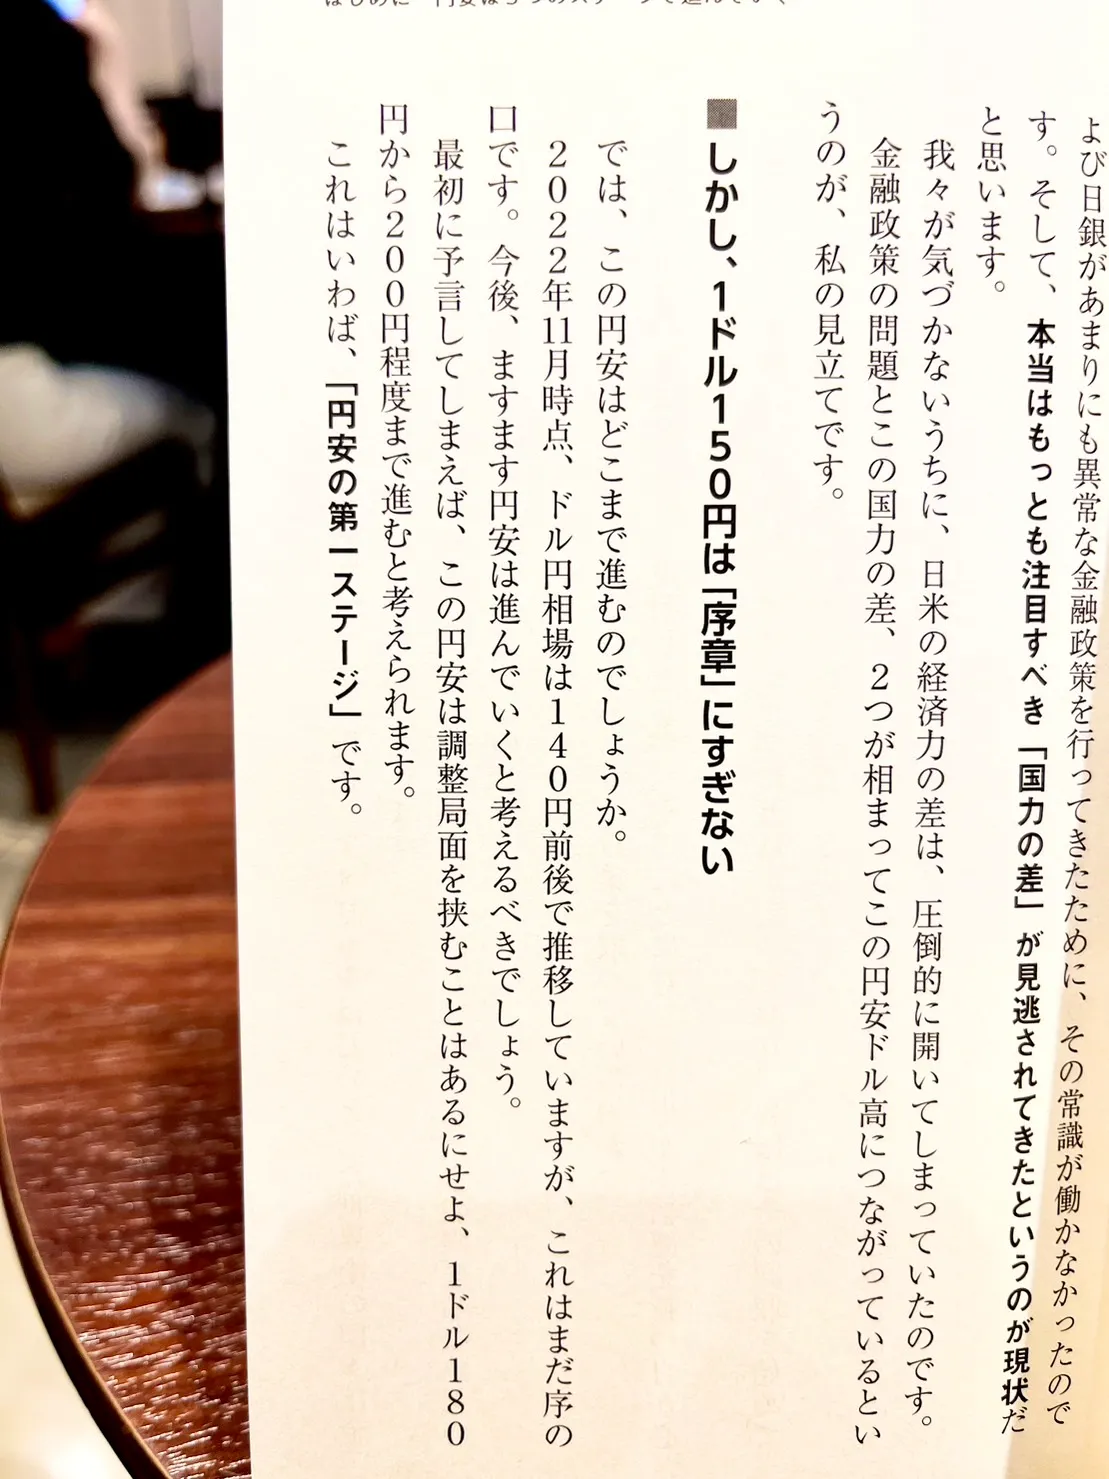 よび日銀があまりにも異常な金融政策を行ってきたために、その常識が働かなかったので
す。そして、本当はもっとも注目すべき「国力の差」が見逃されてきたというのが現状だ
と思います。
我々が気づかないうちに、日米の経済力の差は、圧倒的に開いてしまっていたのです。
金融政策の問題とこの国力の差、2つが相まってこの円安ドル高につながっているとい
うのが、私の見立てです。
■しかし、1ドル150円は「序章」にすぎない
では、この円安はどこまで進むのでしょうか。
2022年11月時点、ドル円相場は140円前後で推移していますが、これはまだ序の
口です。今後、ますます円安は進んでいくと考えるべきでしょう。
最初に予言してしまえば、この円安は調整局面を挟むことはあるにせよ、1ドル180
円から200円程度まで進むと考えられます。
これはいわば、「円安の第一ステージ」です。